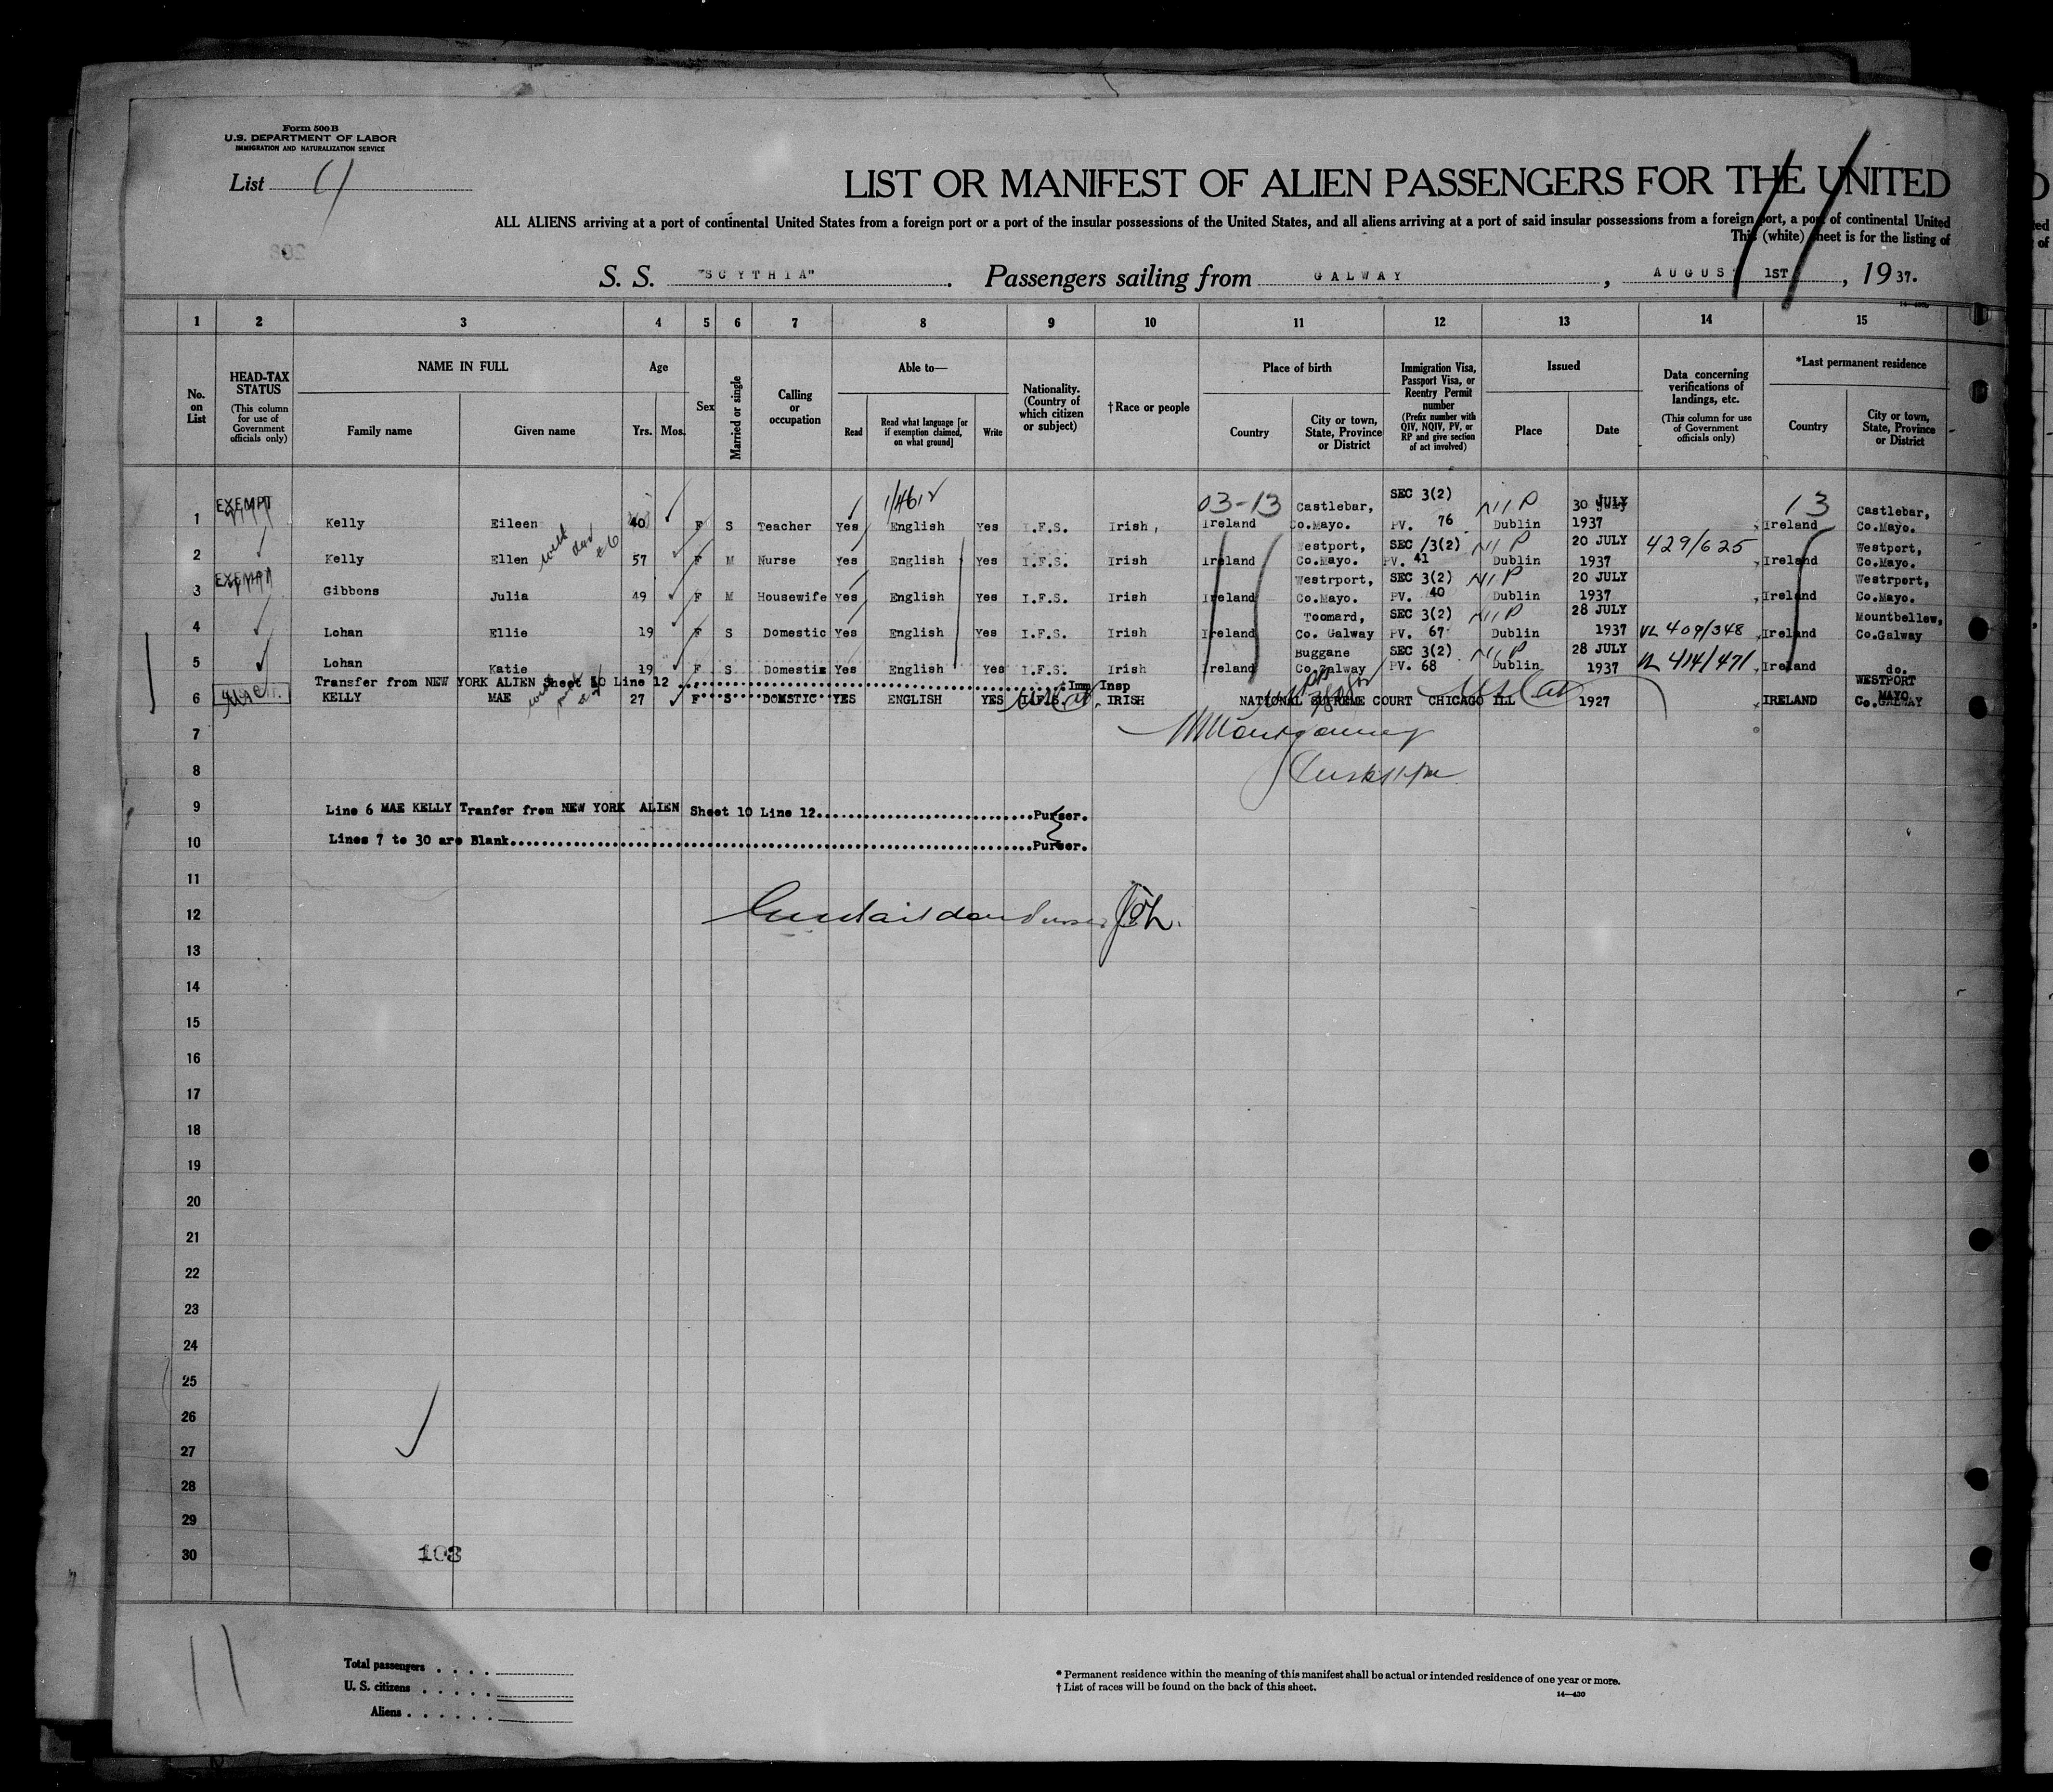 Form 500 B
U.S. DEPARTMENT OF LABOR
IMMIGRATION AND NATURALIZATION SERVICE
List
LIST OR MANIFEST OF ALIEN PASSENGERS FOR THE UNITED
ALL ALIENS arriving at a port of continental United States from a foreign port or a port of the insular possessions of the United States, and all aliens arriving at a port of said insular possessions from a foreign port, a port of continental United
This (white) sheet is for the listing of
S. S. "SCYTHIA" . Passengers sailing from GALWAY , AUGUST 1ST , 19 37.
1 2 3 4 5 6 7 8 9 10 11 12 13 14 15
No. on List
HEAD-TAX STATUS
(This column for use of Government officials only)
NAME IN FULL
Family name Given name
Age
Yrs. Mos.
Sex
Married or single
Calling or occupation
Able to—
Read
Read what language [or if exemption claimed, on what ground]
Write
Nationality. (Country of which citizen or subject)
†Race or people
Place of birth
Country
City or town, State, Province or District
Immigration Visa, Passport Visa, or Reentry Permit number
(Prefix number with QIV, NQIV, PV, or RP and give section of act involved)
Issued
Place Date
Data concerning verifications of landings, etc.
(This column for use of Government officials only)
*Last permanent residence
Country
City or town, State, Province or District
EXEMPT 03-13 SEC 3(2) 13
1 Kelly Eileen 40 F S Teacher Yes English Yes I.F.S. Irish Ireland Castlebar, Co.Mayo. PV. 76 Dublin 30 JULY 1937 Ireland Castlebar, Co.Mayo.
2 Kelly Ellen 57 F M Nurse Yes English Yes I.F.S. Irish Ireland Westport, Co.Mayo. SEC 3(2) PV. 41 Dublin 20 JULY 1937 429/625 Ireland Westport, Co.Mayo.
EXEMPT
3 Gibbons Julia 49 F M Housewife Yes English Yes I.F.S. Irish Ireland Westrport, Co.Mayo. SEC 3(2) PV. 40 Dublin 20 JULY 1937 Ireland Westrport, Co.Mayo.
4 Lohan Ellie 19 F S Domestic Yes English Yes I.F.S. Irish Ireland Toomard, Co. Galway SEC 3(2) PV. 67 Dublin 28 JULY 1937 VL 409/348 Ireland Mountbellew, Co.Galway
5 Lohan Katie 19 F S Domestic Yes English Yes I.F.S. Irish Ireland Buggane Co.Galway SEC 3(2) PV. 68 Dublin 28 JULY 1937 VL 414/471 Ireland do.
Transfer from NEW YORK ALIEN Sheet 10 Line 12 Imm Insp
6 KELLY MAE 27 F S DOMSTIC YES ENGLISH YES IRISH NATIONAL SUPREME COURT CHICAGO ILL 1927 IRELAND WESTPORT Co. MAYO
7
8
9 Line 6 MAE KELLY Tranfer from NEW YORK ALIEN Sheet 10 Line 12 Purser.
10 Lines 7 to 30 are Blank Purser.
11
12
13
14
15
16
17
18
19
20
21
22
23
24
25
26
27
28
29
30
Total passengers
U. S. citizens
Aliens
* Permanent residence within the meaning of this manifest shall be actual or intended residence of one year or more.
† List of races will be found on the back of this sheet.
14—430